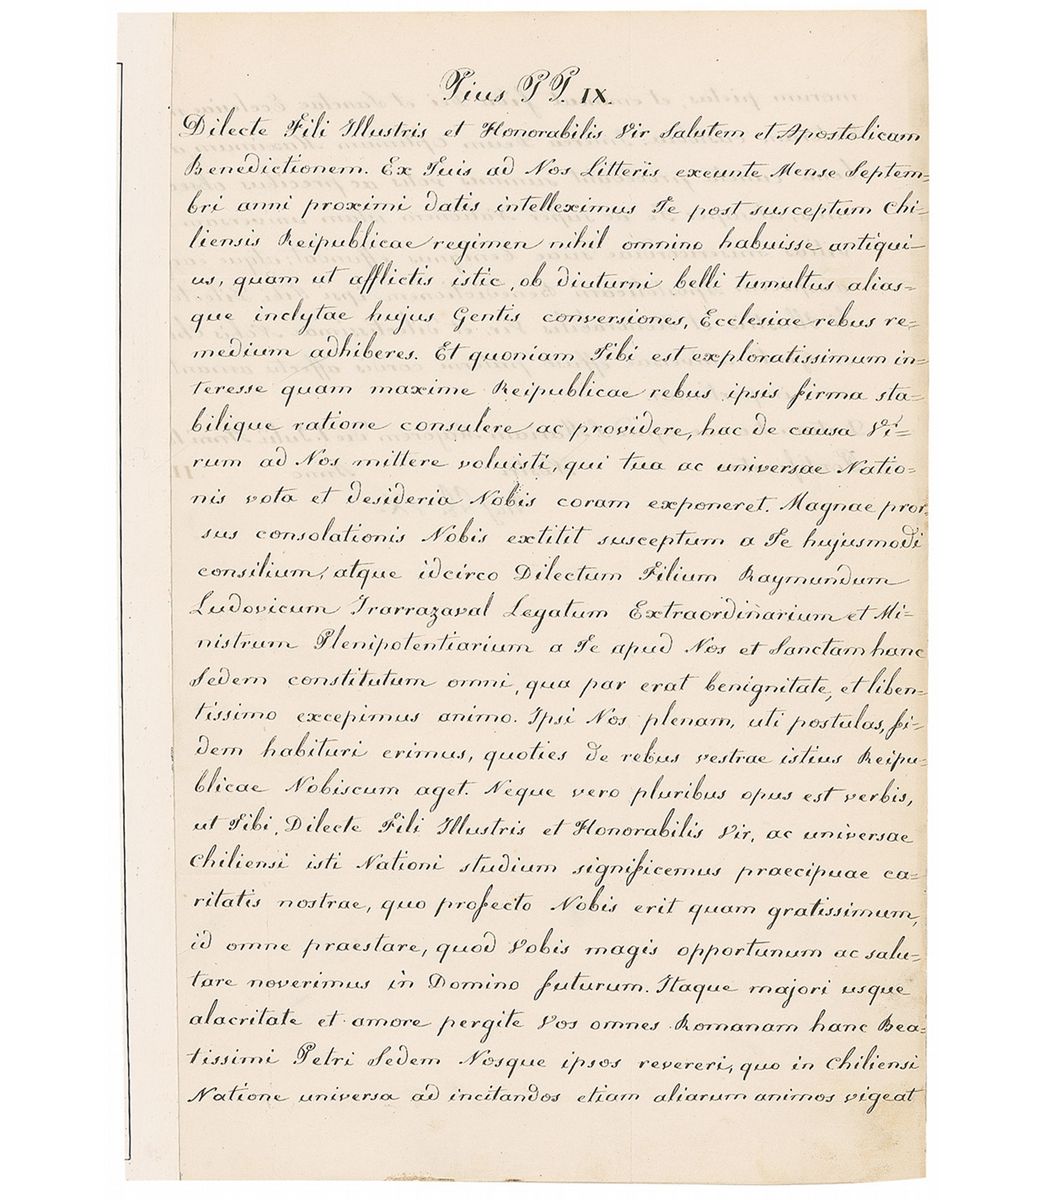 Pius PP. IX.
Dilecte Fili Illustris et Honorabilis Vir Salutem et Apostolicam
Benedictionem. Ex Tuis ad Nos Litteris exeunte Mense Septem=
bri anni proximi datis intelleximus Te post susceptum Chi=
liensis Reipublicae regimen nihil omnino habuisse antiqui=
us, quam ut afflictis istic, ob diuturni belli tumultus alias=
que inclytae hujus Gentis conversiones, Ecclesiae rebus re=
medium adhiberes. Et quoniam Tibi est exploratissimum in=
teresse quam maxime Reipublicae rebus ipsis firma sta=
bilique ratione consulere ac providere, hac de causa Vi=
rum ad Nos mittere voluisti, qui tua ac universae Natio=
nis vota et desideria Nobis coram exponeret. Magnae pror=
sus consolationis Nobis extitit susceptum a Te hujusmodi
consilium, atque idcirco Dilectum Filium Raymundum
Ludovicum Irarrazaval Legatum Extraordinarium et Mi=
nistrum Plenipotentiarium a Te apud Nos et Sanctam hanc
Sedem constitutum omni, qua par erat benignitate, et liben=
tissimo excepimus animo. Ipsi Nos plenam, uti postulas, fi=
dem habituri erimus, quoties de rebus vestrae istius Reipu=
blicae Nobiscum aget. Neque vero pluribus opus est verbis,
ut Tibi, Dilecte Fili Illustris et Honorabilis Vir, ac universae
Chiliensi isti Nationi studium significemus praecipuae ca=
ritatis nostrae, quo profecto Nobis erit quam gratissimum,
id omne praestare, quod Vobis magis opportunum ac salu=
tare noverimus in Domino futurum. Itaque majori usque
alacritate et amore pergite Vos omnes Romanam hanc Bea=
tissimi Petri Sedem Nosque ipsos revereri, quo in Chiliensi
Natione universa ad incitandos etiam aliarum animos vigeat